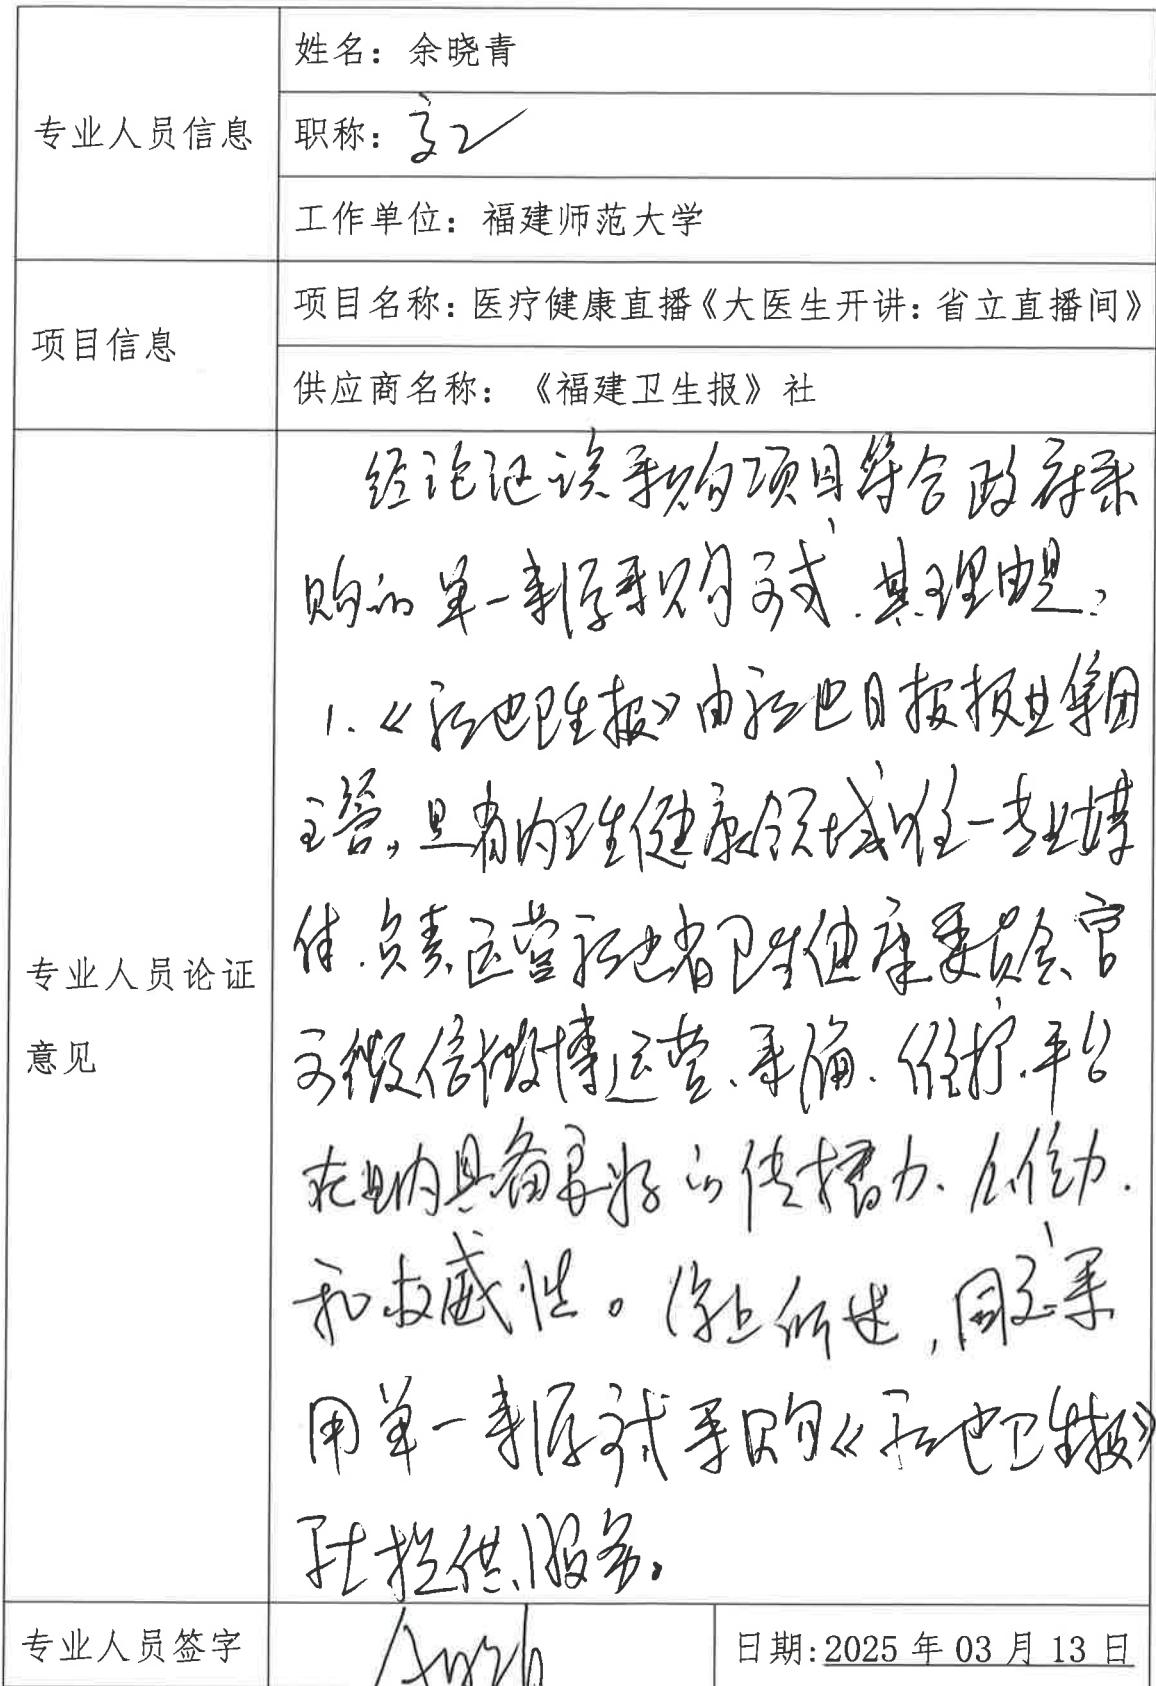 姓名：余晓青
专业人员信息
职称：高工
工作单位：福建师范大学
项目信息
项目名称：医疗健康直播《大医生开讲：省立直播间》
供应商名称：《福建卫生报》社
专业人员论证
意见
经论证该采购项目符合政府采
购的单一来源采购方式.其理由是：
1.《福建卫生报》由福建日报报业集团
主管，是省内卫生健康领域唯一专业媒
体.负责运营福建省卫生健康委员会官
方微信微博运营、采编、维护.平台
在业内具备良好的传播力、公信力.
和权威性。综上所述，同意采
用单一来源方式采购《福建卫生报》
社提供服务。
专业人员签字
日期:2025年03月13日